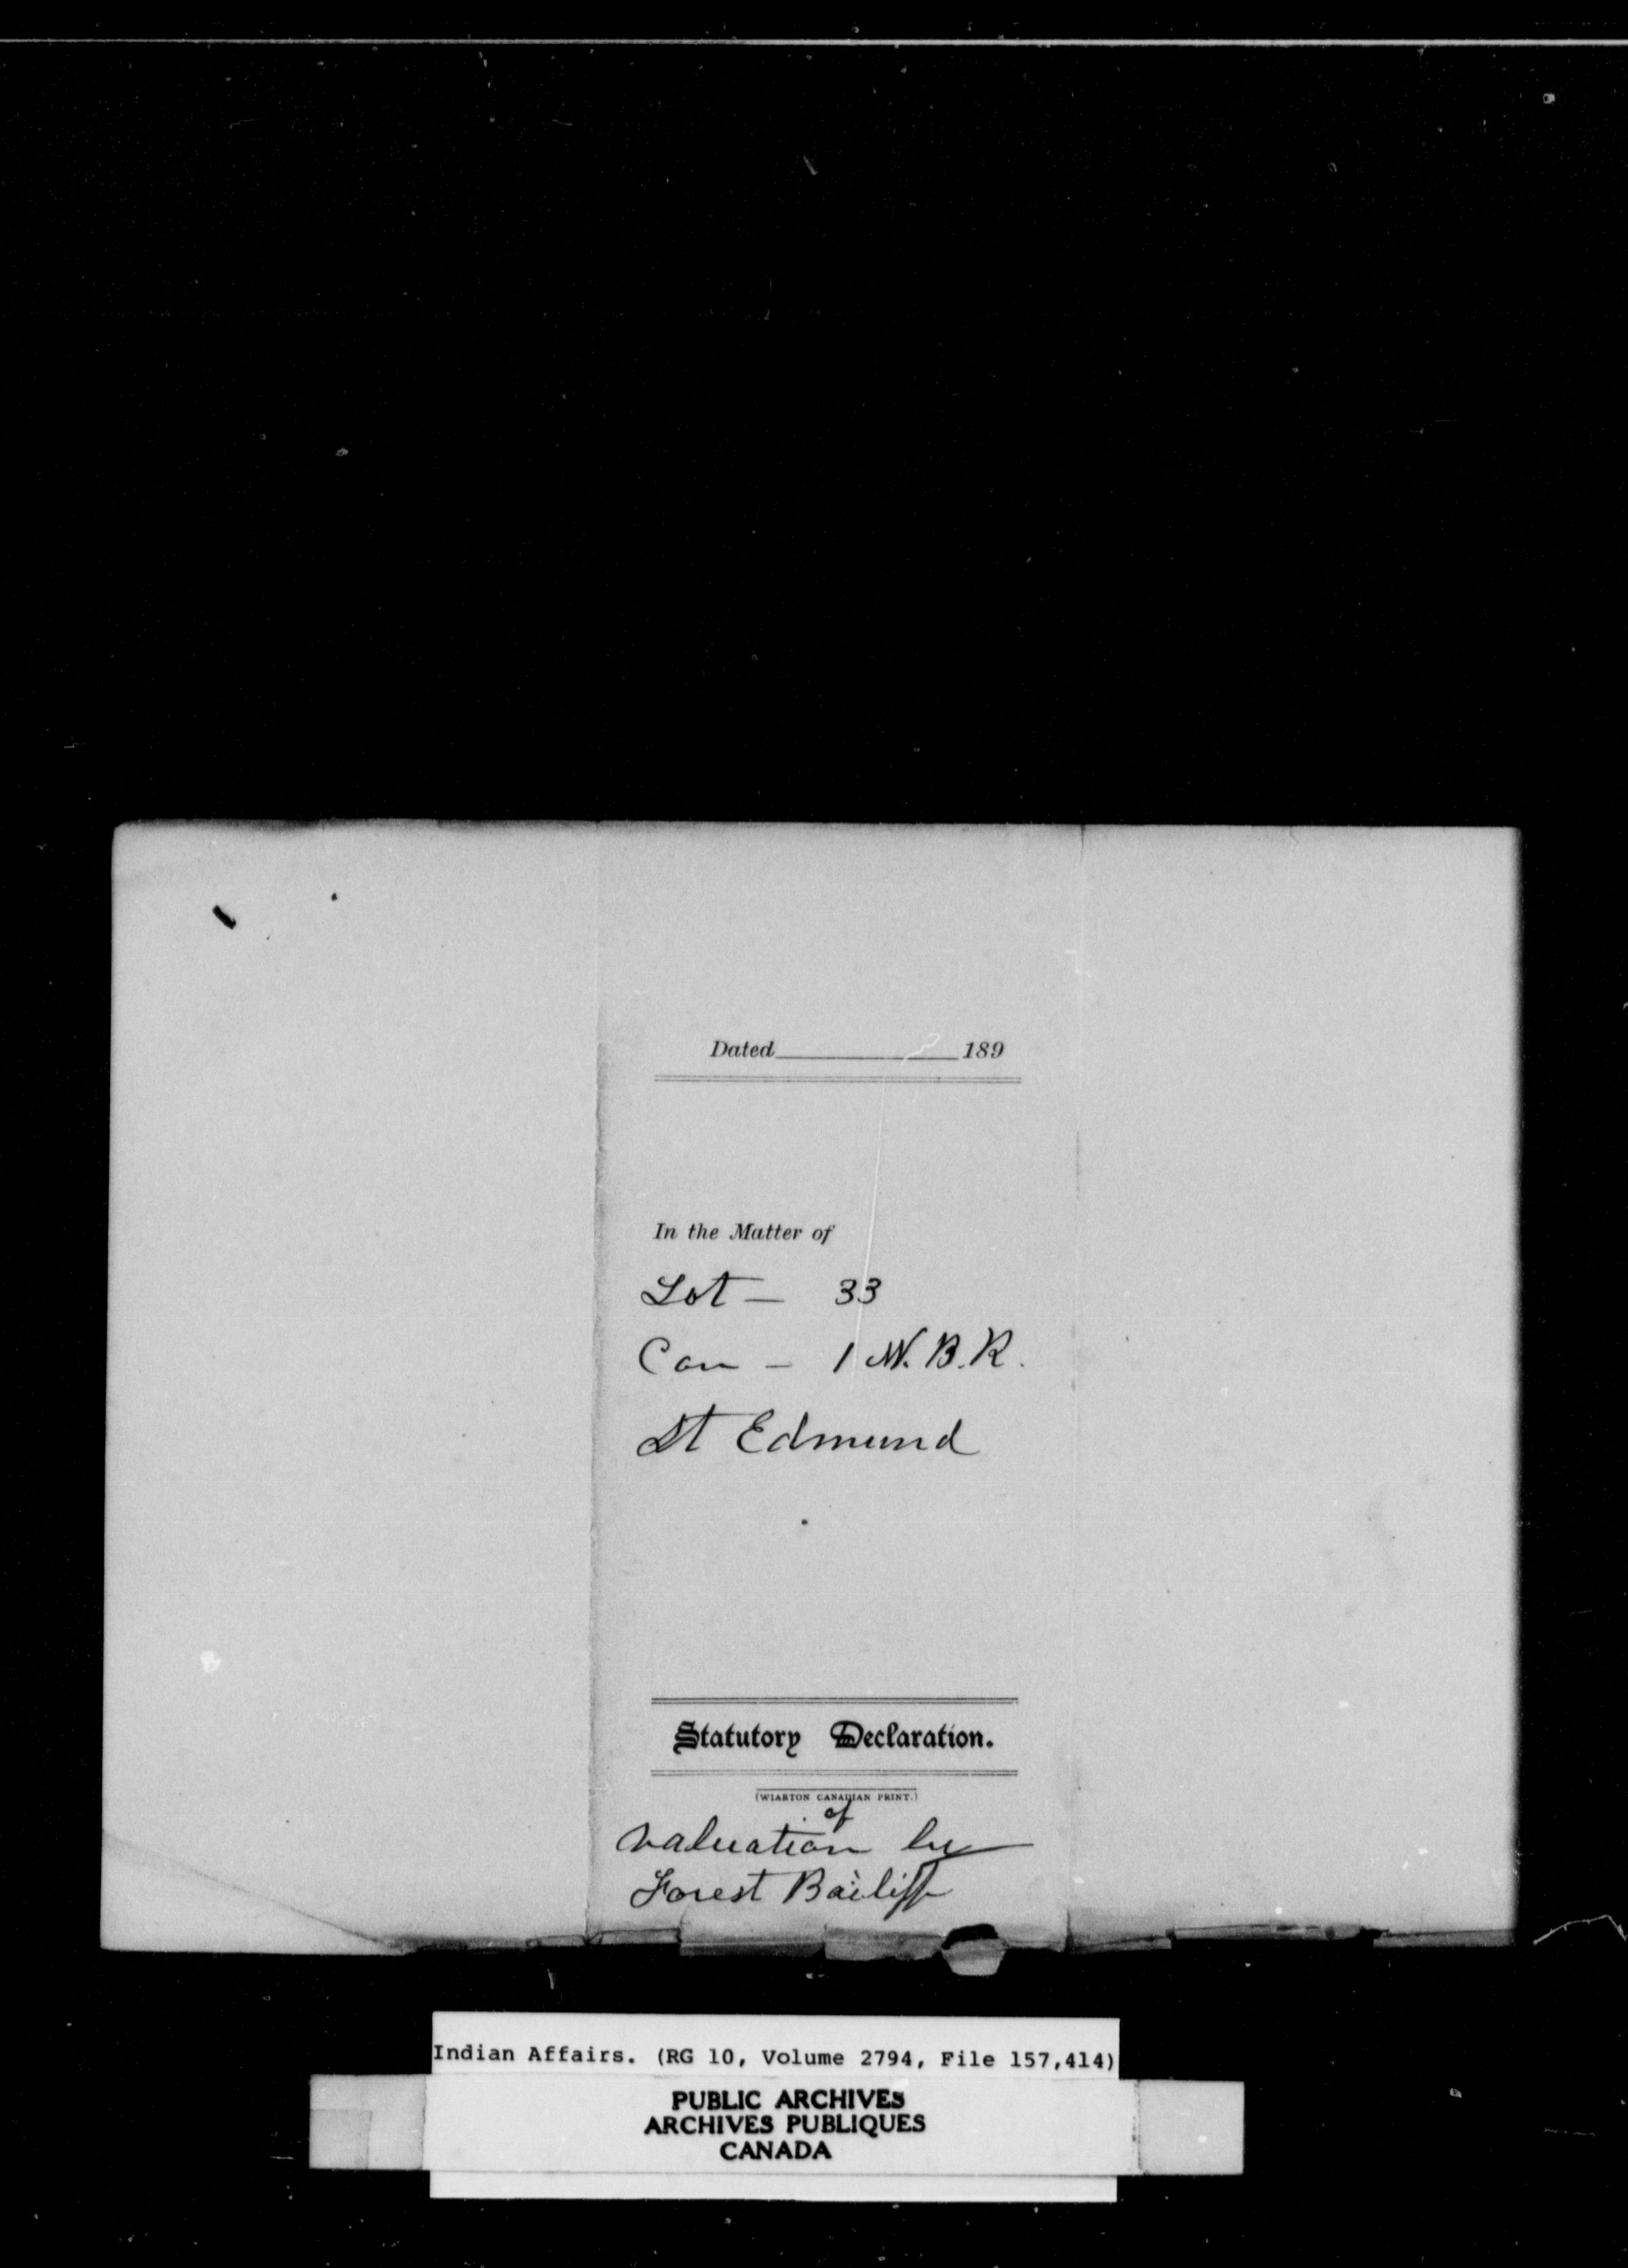 Dated 189
In the Matter of
Lot – 33
Con – 1 W. B. R.
St Edmund
Statutory Declaration.
(WIARTON CANADIAN PRINT.)
of
valuation by
Forest Bailiff
Indian Affairs. (RG 10, Volume 2794, File 157,414)
PUBLIC ARCHIVES
ARCHIVES PUBLIQUES
CANADA